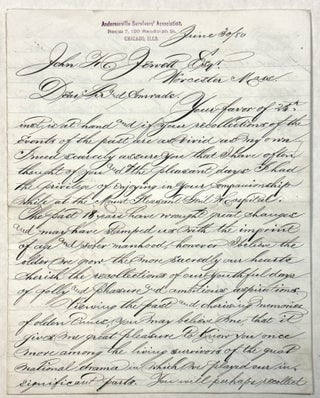 Andersonville Survivors' Association,
Room 7, 120 Randolph St.
CHICAGO, ILLS.
June 30/80
John H. Jewett Esq.
Worcester Mass
Dear Sir and Comrade.
Your favor of 25th
inst is at hand and if your recollections of the
events of the past are as vivid as my own
I need scarcely assure you that I have often
thought of you and the pleasant days I had
the privilege of enjoying in your companionship
while at the Mount Pleasant Genl Hospital.
The past 18 years have wrought great changes
and may have stamped us with the imprint
of age and sober manhood, however I believe the
older we grow the more sacredly our hearts
cherish the recollections of our youthful days
of folly and pleasure and ambitious aspirations.
Viewing the past and cherishing memories
of olden times, you may believe me, that it
gives me great pleasure to know you once
more among the living survivors of the great
national drama in which we played our in-
significant parts. You will perhaps recollect